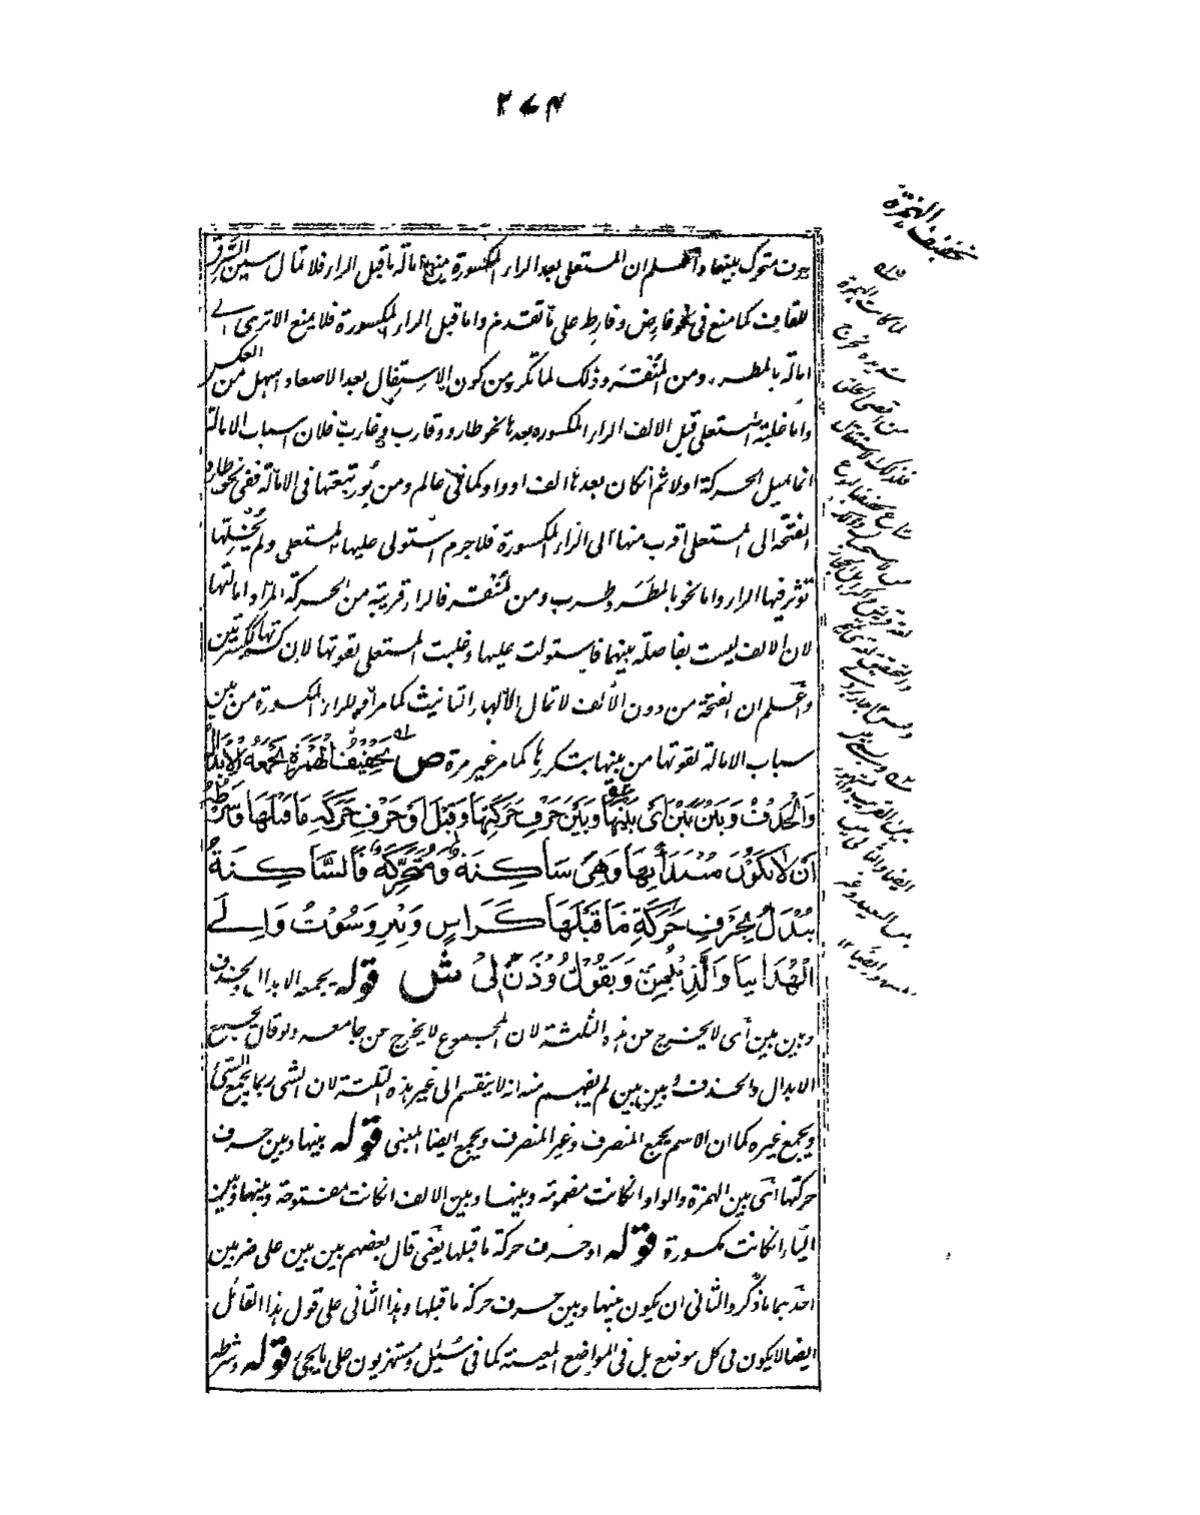 ٢٧٤
تخفيف الهمزة
بحرف متحرك بينهما واعلم ان المستعلى بعد الراء المكسورة يمنع امالة ما قبل الراء فلا تمال سين السرق
للقاف كما منع فى نحو فارض وفارط على ما تقدم واما قبل الراء المكسورة فلا يمنع الا ترى الى
امالة بالمطر ومن المنقر وذلك لما تكرر من كون الاستفال بعد الاصعاد اسهل من العكس
واما غلبة المستعلى قبل الالف الراء المكسورة بعدها نحو طارد وقارب وغارب فلان اسباب الامالة
انما تميل الحركة اولا ثم ان كان بعدها الف او واو كما فى عالم ومن نور تبعتها فى الامالة ففى نحو طارد
الفتحة الى المستعلى اقرب منها الى الراء المكسورة فلا جرم استولى عليها المستعلى ولم يخلها
تؤثر فيها الراء واما نحو بالمطر وطرب ومن المنقر فالراء قريبة من الحركة المراد امالتها
لان الالف ليست بفاصلة بينهما فاستولت عليها وغلبت المستعلى بقوتها لان كسرتها ككسرتين
واعلم ان الفتحة من دون الألف لا تمال الا لهاء التانيث كما مر او للراء المكسورة من بين
اسباب الامالة لقوتها من بينها بتكريرها كما مر غير مرة ص تخفيف الهمزة يجمعه الابدال
والحذف وبين بين اى بينها وبين حرف حركتها وقيل او حرف حركة ما قبلها وشرطه
ان لا تكون مبتدأ بها وهى ساكنة ومتحركة فالساكنة
تبدل بحرف حركة ما قبلها كراس وبير وسوت والى
الهداتنا والذيتمن ويقولوذن لى ش قوله يجمعه الابدال والحذف
وبين بين أى لا يخرج من هذه الثلثة لان المجموع لا يخرج عن جامعه ولو قال يجمع
الابدال والحذف وبين بين لم يفهم منه انه لا ينقسم الى غير هذه الثلثة لان الشى ربما يجمع الشئ
ويجمع غيره كما ان الاسم يجمع المنصرف وغير المنصرف ويجمع ايضا المبنى قوله بينها وبين حرف
حركتها اى بين الهمزة والواو ان كانت مضمومة وبينها وبين الالف ان كانت مفتوحة وبينها وبين
الياء ان كانت مكسورة قوله او حرف حركة ما قبلها يعنى قال بعضهم بين بين على ضربين
احدهما ما ذكر والثانى ان يكون بينها وبين حرف حركة ما قبلها وهذا الثانى على قول هذا القائل
ايضا لا يكون فى كل موضع بل فى المواضع المعينة كما فى سئل ومستهزيون على ما يجئ قوله وشرطه
قوله
لما كانت الهمزة
شديدة مخرج
من اقصى الحلق
فلذلك الاستثقال
ساغ تخفيفها لنوع
ايضا والثانى